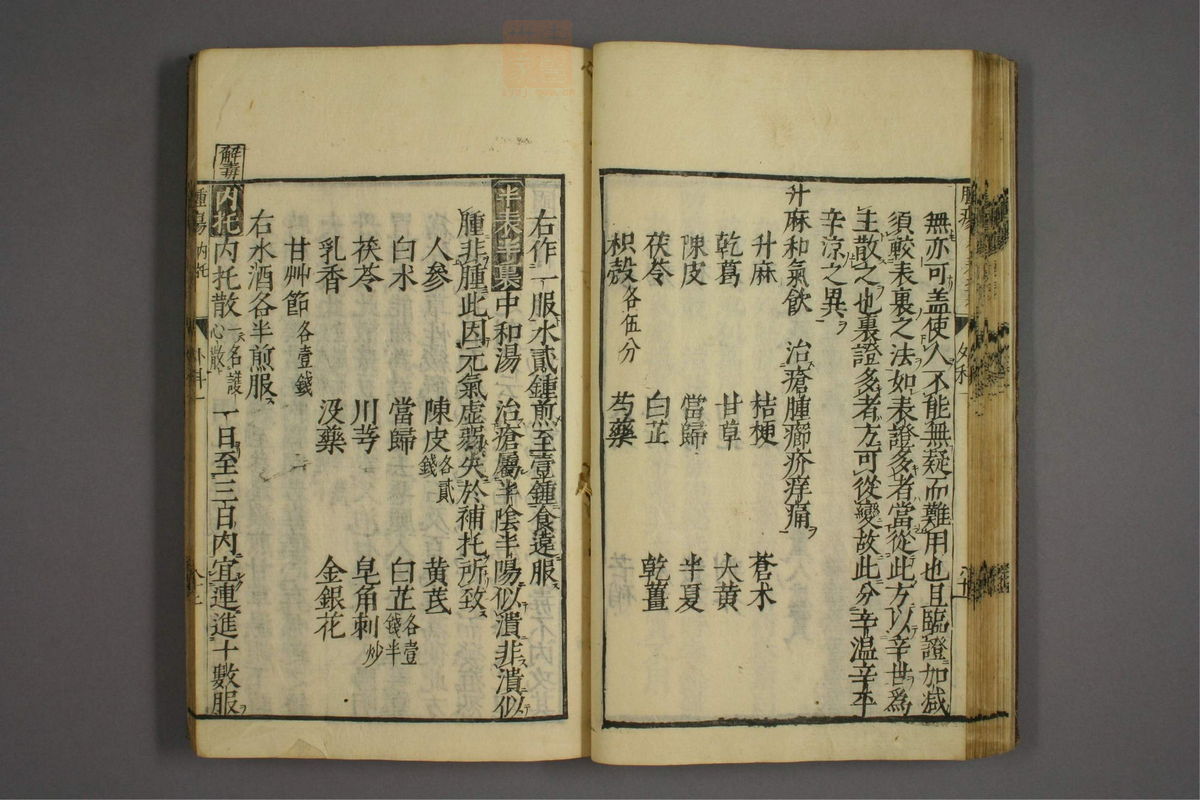 無亦可蓋使人不能無疑而難用也且臨證加减
須較表裏之法如表證多者當從此方以辛世為
主散之也裏證多者方可從變故此分辛温辛平
辛凉之異
升麻和氣飲　治瘡腫癤疥痒痛
升麻　桔梗　蒼朮
乾葛　甘草　大黄
陳皮　當歸　半夏
茯苓　白芷　乾薑
枳殼各伍分　芍藥
右作一服水貳鍾煎至壹鍾食遠服
半表半裏中和湯　治瘡屬半陰半陽似潰非潰似
腫非腫此因元氣虚弱失於補托所致
人參　陳皮各貳錢　黄芪
白朮　當歸　白芷各壹錢半
茯苓　川芎　皂角刺炒
乳香　没藥　金銀花
甘艸節各壹錢
右水酒各半煎服
解毒
内托内托散一名護心散　一日至三日内宜連進十數服
腫瘍　内托　外科